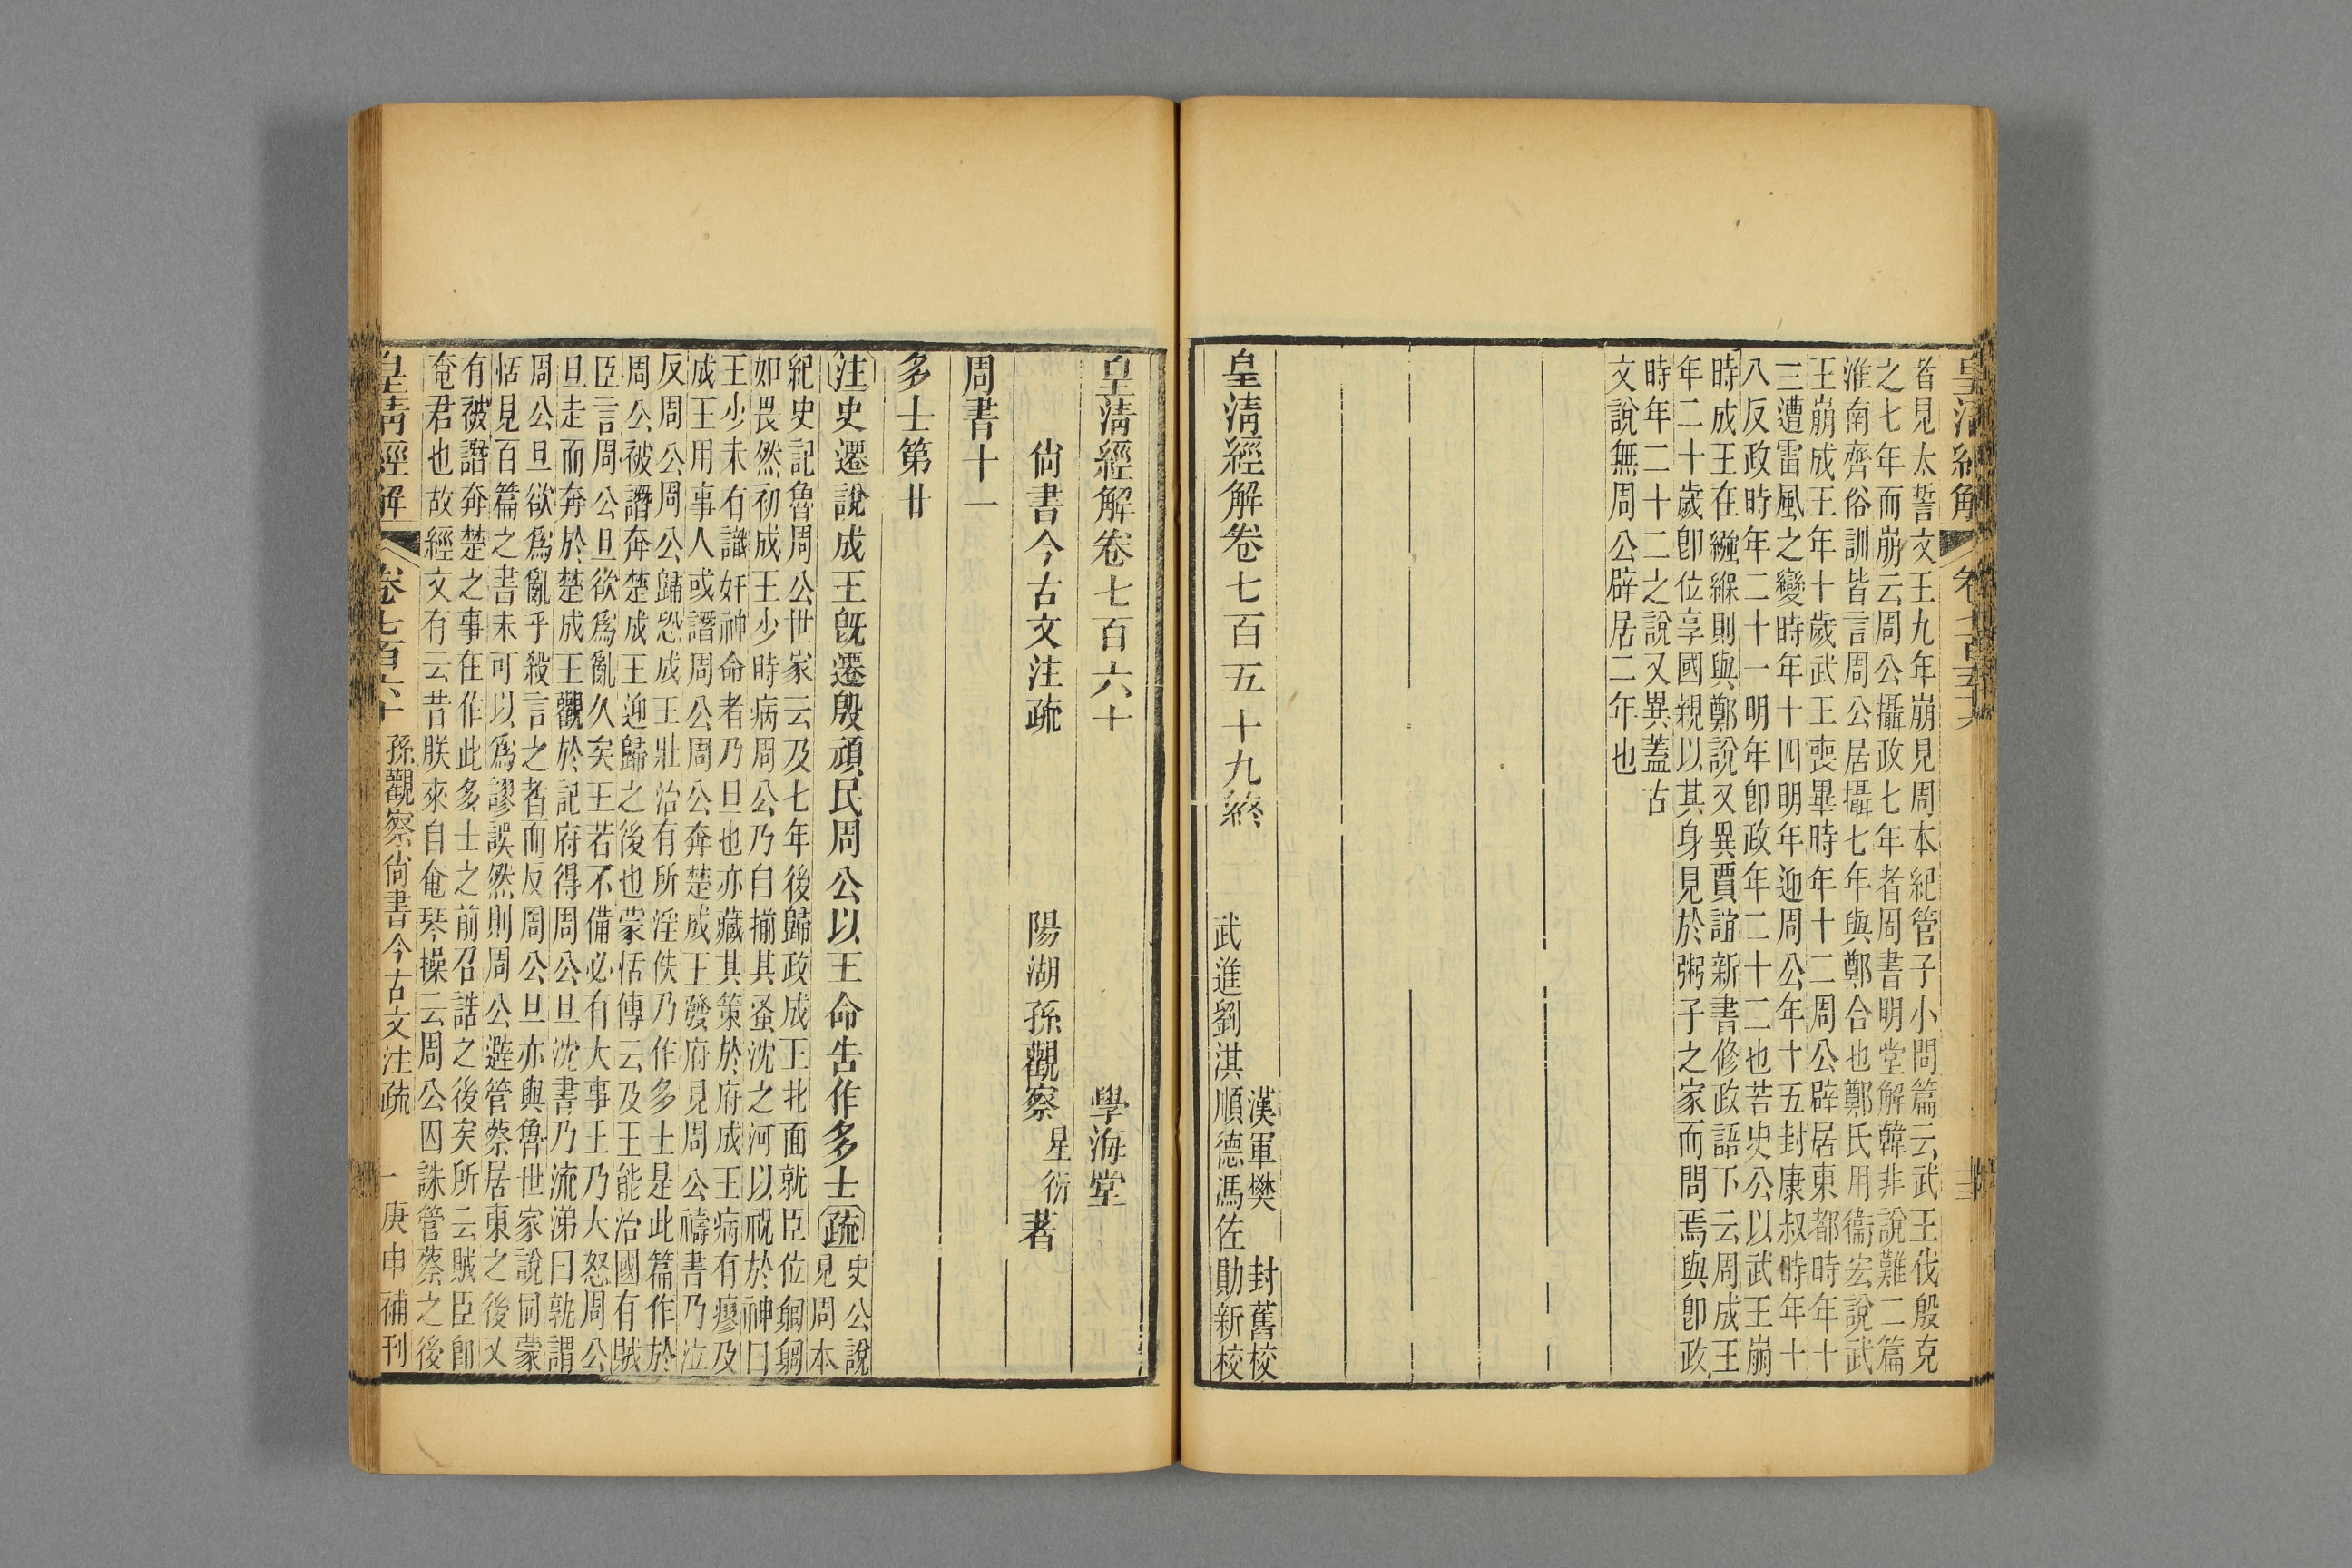 皇清經解
者見太誓文王九年崩見周本紀管子小問篇云武王伐殷克
之七年而崩云周公攝政七年者周書明堂解韓非說難二篇
淮南齊俗訓皆言周公居攝七年與鄭合也鄭氏用衞宏說武
王崩成王年十歲武王喪畢時年十二周公辟居東都時年十
三遭雷風之變時年十四明年迎周公年十五封康叔時年十
八反政時年二十一明年卽政年二十二也若史公以武王崩
時成王在繈緥則與鄭說又異賈誼新書修政語下云周成王
年二十歲卽位享國親以其身見於粥子之家而問焉與卽政
時年二十二之說又異蓋古
文說無周公辟居二年也
皇淸經解卷七百五十九終
漢軍樊封舊校
武進劉淇順德馮佐勛新校
皇淸經解卷七百六十
學海堂
尙書今古文注疏
陽湖孫觀察星衍著
周書十一
多士第廿
注史遷說成王旣遷殷頑民周公以王命告作多士疏史公說
見周本
紀史記魯周公世家云及七年後歸政成王北面就臣位匑匑
如畏然初成王少時病周公乃自揃其蚤沈之河以祝於神曰
王少未有識奸神命者乃旦也亦藏其策於府成王病有瘳及
成王用事人或譖周公周公奔楚成王發府見周公禱書乃泣
反周公周公歸恐成王壯治有所淫佚乃作多士是此篇作於
周公被譖奔楚成王迎歸之後也蒙恬傳云及王能治國有賊
臣言周公旦欲爲亂久矣王若不備必有大事王乃大怒周公
旦走而奔於楚成王觀於記府得周公旦沈書乃流涕曰孰謂
周公旦欲爲亂乎殺言之者而反周公旦亦與魯世家說同蒙
恬見百篇之書未可以爲謬誤然則周公避管蔡居東之後又
有被譖奔楚之事在作此多士之前召誥之後矣所云賊臣卽
奄君也故經文有云昔朕來自奄琴操云周公囚誅管蔡之後
皇淸經解
卷七百六十
孫觀察尙書今古文注疏
一
庚申補刊